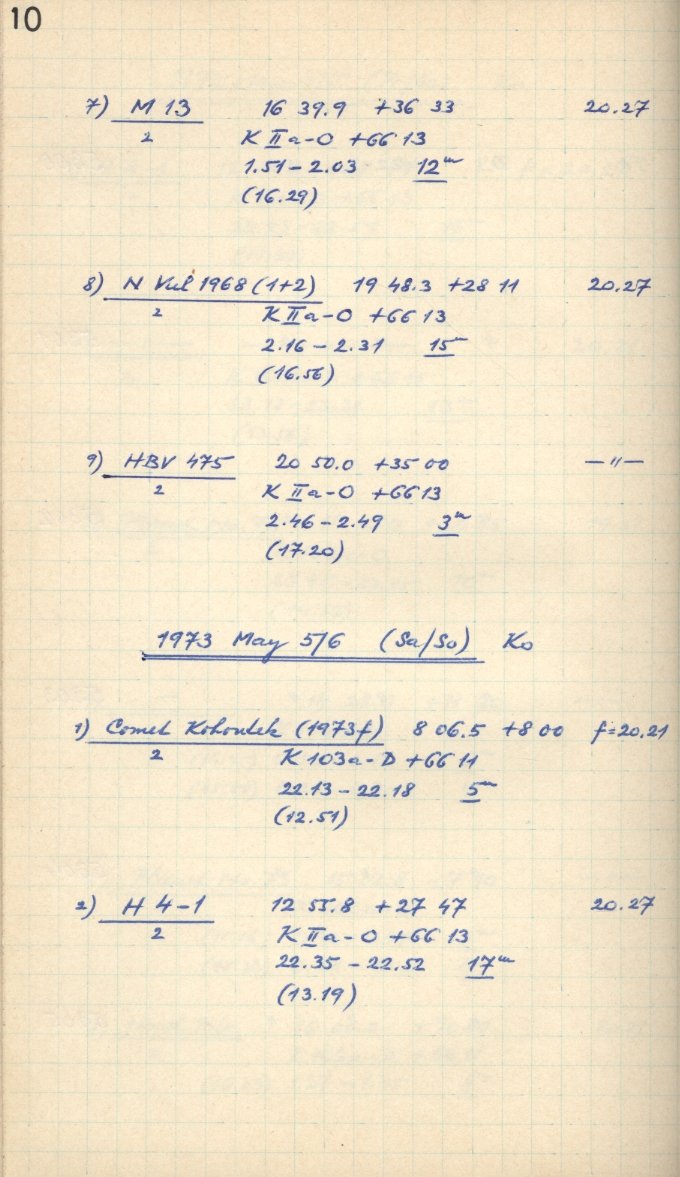 10
7) M 13 16 39.9 +36 33 20.27
2 K IIa-O +GG 13
1.51 – 2.03 12m
(16.29)
8) N Vul 1968 (1+2) 19 48.3 +28 11 20.27
2 K IIa-O +GG 13
2.16 – 2.31 15m
(16.56)
9) HBV 475 20 50.0 +35 00 —"—
2 K IIa-O +GG 13
2.46 – 2.49 3m
(17.20)
1973 May 5/6 (Sa/So) Ko
1) Comet Kohoutek (1973f) 8 06.5 +8 00 f=20.21
2 K 103a-D +GG 11
22.13 – 22.18 5m
(12.51)
2) H 4-1 12 55.8 +27 47 20.27
2 K IIa-O +GG 13
22.35 – 22.52 17m
(13.19)